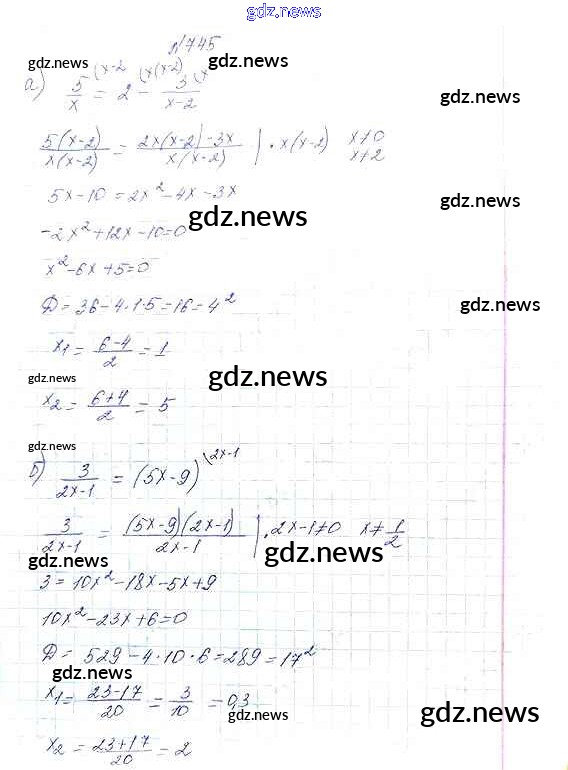 gdz.news
№745
gdz.news
а) 5/x (x-2 = 2 (x(x-2) - 3/(x-2) (x
gdz.news
5(x-2)/x(x-2) = 2x(x-2)-3x/x(x-2) | · x(x-2) x≠0 x≠2
5x-10=2x²-4x-3x
gdz.news
gdz.news
-2x²+12x-10=0
x²-6x+5=0
Д=36-4·1·5=16=4²
gdz.news
x1=(6-4)/2=1
gdz.news
gdz.news
x2=(6+4)/2=5
gdz.news
б) 3/(2x-1) = (5x-9) (2x-1
3/(2x-1) = (5x-9)(2x-1)/2x-1 | · 2x-1≠0 x≠1/2
gdz.news
3=10x²-18x-5x+9
10x²-23x+6=0
Д= 529-4·10·6=289=17²
gdz.news
x1=(23-17)/20=3/10=0,3
gdz.news
gdz.news
x2=(23+17)/20=2